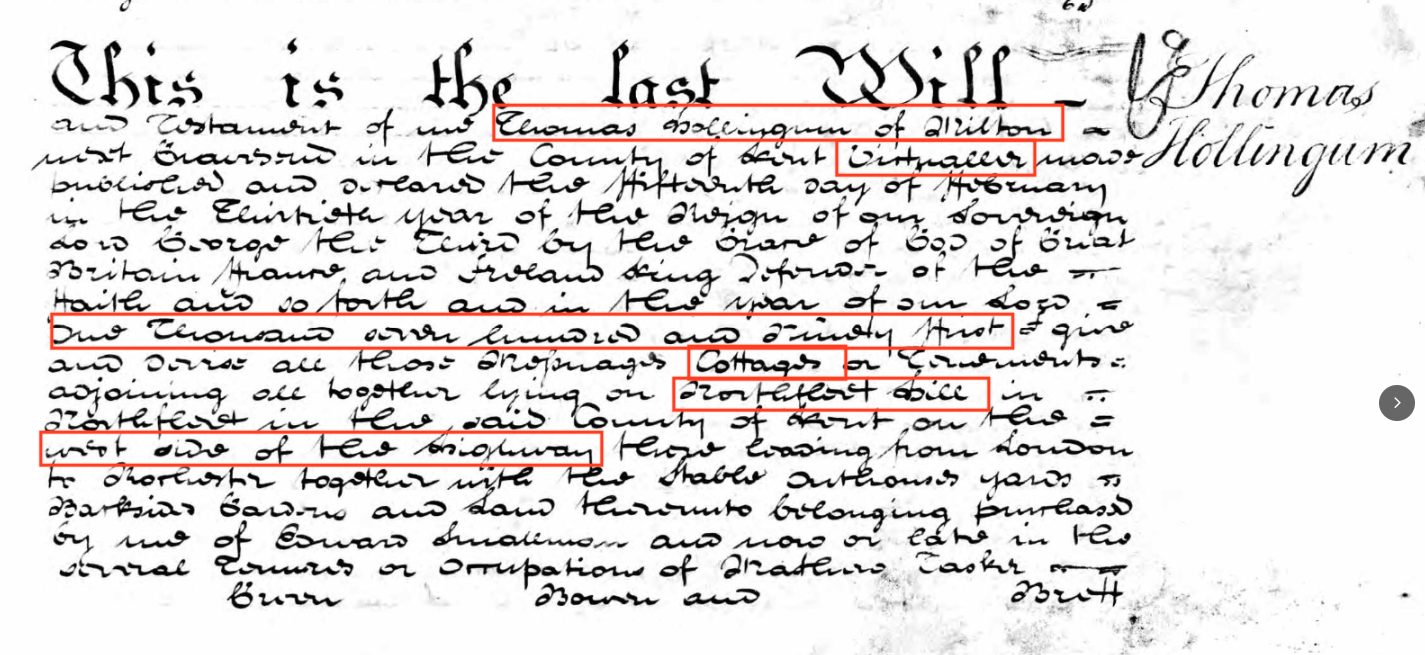 This is the last Will
Thomas
Hollingum
and Testament of me Thomas Hollingum of Milton
next Gravesend in the County of Kent Victualler made
published and declared the Fifteenth day of February
in the Thirtieth year of the Reign of our Sovereign
Lord George the Third by the Grace of God of Great
Britain France and Ireland King Defender of the
Faith and so forth and in the year of our Lord
One Thousand seven hundred and Ninety First I give
and devise all those Messuages Cottages or Tenements
adjoining all together lying on Northfleet Hill in
Northfleet in the said County of Kent on the
west side of the Highway there leading from London
to Rochester together with the Stable Outhouses yards
Backsides Gardens and Land thereunto belonging purchased
by me of Edward Smallman and now or late in the
several Tenures or Occupations of Tasker
Green Bowen and Brett